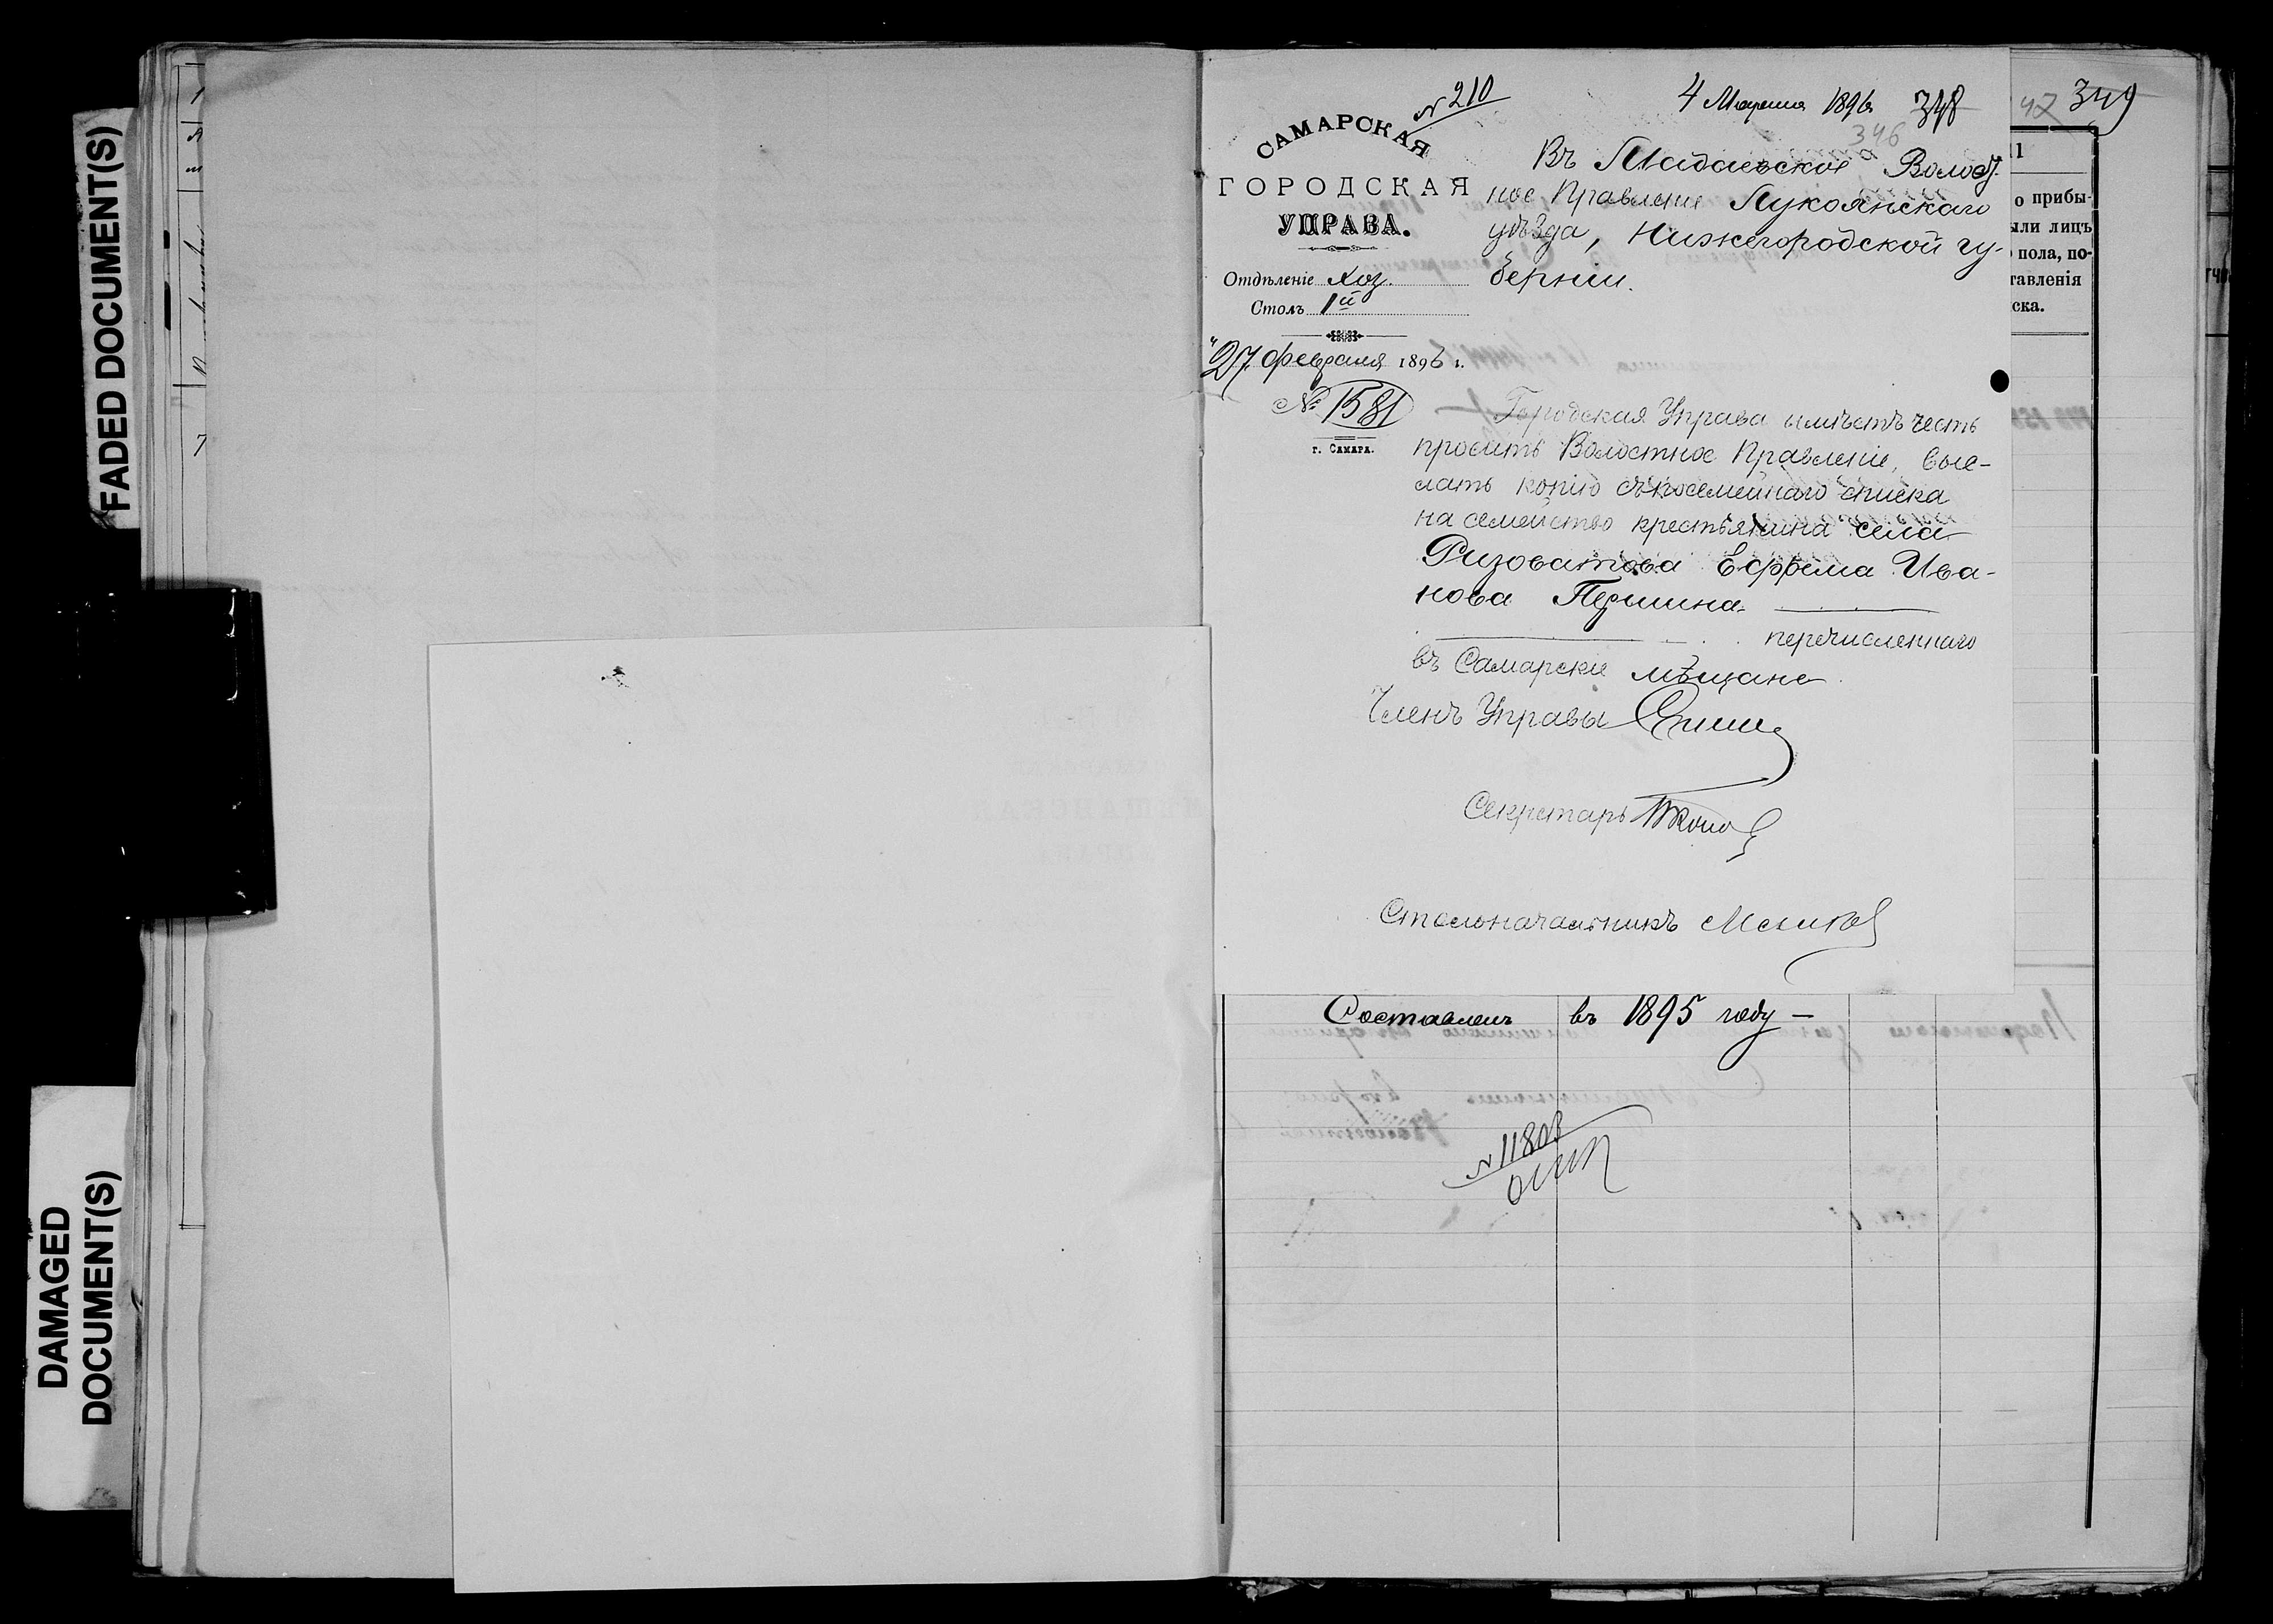 FADED DOCUMENT(S)
DAMAGED
DOCUMENT(S)
№ 210
4 Марта 1896 348
349
47
346
САМАРСКАЯ
ГОРОДСКАЯ
УПРАВА.
Отдѣленіе Хоз.
Столъ 1й
"27 февраля 1896 г.
№ 1581
г. Самара.
Въ Мадаевское Волост-
ное Правленіе Лукоянскаго
уѣзда, Нижегородской гу-
берніи.
Городская Управа имѣетъ честь
просить Волостное Правленіе, выс-
лать копію съ посемейнаго списка
на семейство крестьянина села
Ризоватова Ефрема Ива-
нова Першина
перечисленнаго
въ Самарскіе мѣщане.
Членъ Управы
Секретарь
Столоначальникъ
11
о прибы-
или лицъ
пола, по-
тавленія
ска.
Составленъ въ 1895 году —